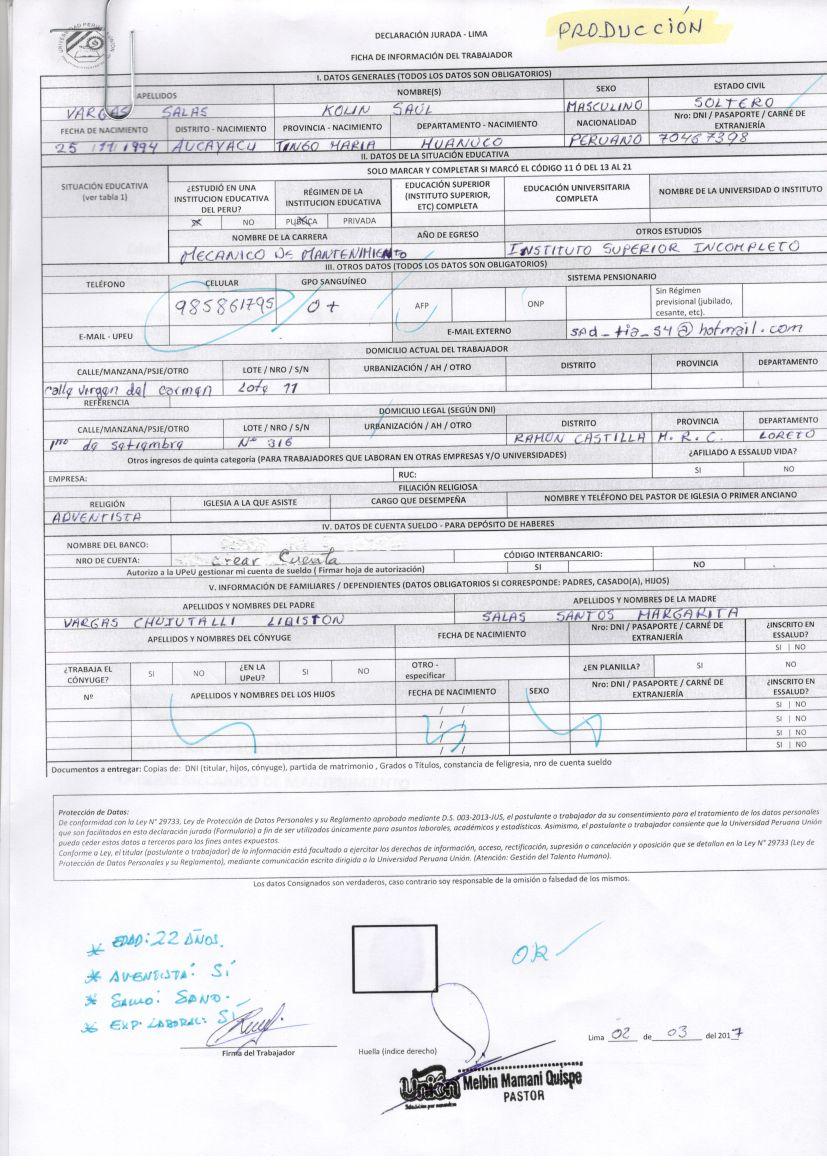 UNIVERSIDAD PERUANA UNION
DECLARACIÓN JURADA - LIMA
PRODUCCIÓN
FICHA DE INFORMACIÓN DEL TRABAJADOR
I. DATOS GENERALES (TODOS LOS DATOS SON OBLIGATORIOS)
APELLIDOS NOMBRE(S) SEXO ESTADO CIVIL
VARGAS SALAS KOLIN SAÚL MASCULINO SOLTERO
FECHA DE NACIMIENTO DISTRITO - NACIMIENTO PROVINCIA - NACIMIENTO DEPARTAMENTO - NACIMIENTO NACIONALIDAD Nro: DNI / PASAPORTE / CARNÉ DE EXTRANJERÍA
25 /11/1994 AUCAYACU TINGO MARIA HUANUCO PERUANO 70467398
II. DATOS DE LA SITUACIÓN EDUCATIVA
SOLO MARCAR Y COMPLETAR SI MARCÓ EL CÓDIGO 11 Ó DEL 13 AL 21
SITUACIÓN EDUCATIVA (ver tabla 1) ¿ESTUDIÓ EN UNA INSTITUCION EDUCATIVA DEL PERU? RÉGIMEN DE LA INSTITUCION EDUCATIVA EDUCACIÓN SUPERIOR (INSTITUTO SUPERIOR, ETC) COMPLETA EDUCACIÓN UNIVERSITARIA COMPLETA NOMBRE DE LA UNIVERSIDAD O INSTITUTO
NO PUBLICA PRIVADA
NOMBRE DE LA CARRERA AÑO DE EGRESO OTROS ESTUDIOS
MECANICO DE MANTENIMIENTO INSTITUTO SUPERIOR INCOMPLETO
III. OTROS DATOS (TODOS LOS DATOS SON OBLIGATORIOS)
TELÉFONO CELULAR GPO SANGUÍNEO SISTEMA PENSIONARIO
985861795 O+ AFP ONP Sin Régimen previsional (jubilado, cesante, etc).
E-MAIL - UPEU E-MAIL EXTERNO sad_tia_54@hotmail.com
DOMICILIO ACTUAL DEL TRABAJADOR
CALLE/MANZANA/PSJE/OTRO LOTE / NRO / S/N URBANIZACIÓN / AH / OTRO DISTRITO PROVINCIA DEPARTAMENTO
calle virgen del carmen Lote 11
REFERENCIA
DOMICILIO LEGAL (SEGÚN DNI)
CALLE/MANZANA/PSJE/OTRO LOTE / NRO / S/N URBANIZACIÓN / AH / OTRO DISTRITO PROVINCIA DEPARTAMENTO
1mo de setiembre N° 316 RAMÓN CASTILLA M.R.C. LORETO
Otros ingresos de quinta categoría (PARA TRABAJADORES QUE LABORAN EN OTRAS EMPRESAS Y/O UNIVERSIDADES) ¿AFILIADO A ESSALUD VIDA?
EMPRESA: RUC: SI NO
FILIACIÓN RELIGIOSA
RELIGIÓN IGLESIA A LA QUE ASISTE CARGO QUE DESEMPEÑA NOMBRE Y TELÉFONO DEL PASTOR DE IGLESIA O PRIMER ANCIANO
ADVENTISTA
IV. DATOS DE CUENTA SUELDO - PARA DEPÓSITO DE HABERES
NOMBRE DEL BANCO:
NRO DE CUENTA: crear Cuenta CÓDIGO INTERBANCARIO:
Autorizo a la UPeU gestionar mi cuenta de sueldo ( Firmar hoja de autorización) SI NO
V. INFORMACIÓN DE FAMILIARES / DEPENDIENTES (DATOS OBLIGATORIOS SI CORRESPONDE: PADRES, CASADO(A), HIJOS)
APELLIDOS Y NOMBRES DEL PADRE APELLIDOS Y NOMBRES DE LA MADRE
VARGAS CHUJUTALLI LIQISTON SALAS SANTOS MARGARITA
APELLIDOS Y NOMBRES DEL CÓNYUGE FECHA DE NACIMIENTO Nro: DNI / PASAPORTE / CARNÉ DE EXTRANJERÍA ¿INSCRITO EN ESSALUD?
SI | NO
¿TRABAJA EL CÓNYUGE? SI NO ¿EN LA UPeU? SI NO OTRO - especificar ¿EN PLANILLA? SI NO
Nº APELLIDOS Y NOMBRES DEL LOS HIJOS FECHA DE NACIMIENTO SEXO Nro: DNI / PASAPORTE / CARNÉ DE EXTRANJERÍA ¿INSCRITO EN ESSALUD?
/ / SI | NO
/ / SI | NO
/ / SI | NO
/ / SI | NO
Documentos a entregar: Copias de: DNI (titular, hijos, cónyuge), partida de matrimonio , Grados o Títulos, constancia de feligresia, nro de cuenta sueldo
Protección de Datos:
De conformidad con la Ley N° 29733, Ley de Protección de Datos Personales y su Reglamento aprobado mediante D.S. 003-2013-JUS, el postulante o trabajador da su consentimiento para el tratamiento de los datos personales
que son facilitados en esta declaración jurada (Formulario) a fin de ser utilizados únicamente para asuntos laborales, académicos y estadísticos. Asimismo, el postulante o trabajador consiente que la Universidad Peruana Unión
pueda ceder estos datos a terceros para los fines antes expuestos.
Conforme a Ley, el titular (postulante o trabajador) de la información está facultado a ejercitar los derechos de información, acceso, rectificación, supresión o cancelación y oposición que se detallan en la Ley N° 29733 (Ley de
Protección de Datos Personales y su Reglamento), mediante comunicación escrita dirigida a la Universidad Peruana Unión. (Atención: Gestión del Talento Humano).
Los datos Consignados son verdaderos, caso contrario soy responsable de la omisión o falsedad de los mismos.
* EDAD: 22 AÑOS.
* AVENTISTA: SÍ
* SALUD: SANO.
* EXP. LABORAL: SI
OK
Firma del Trabajador
Huella (índice derecho)
Lima 02 de 03 del 2017
Unión
Melbin Mamani Quispe
PASTOR